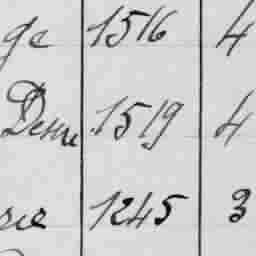 ge 1516 4
Denn 1519 4
rie 1245 3